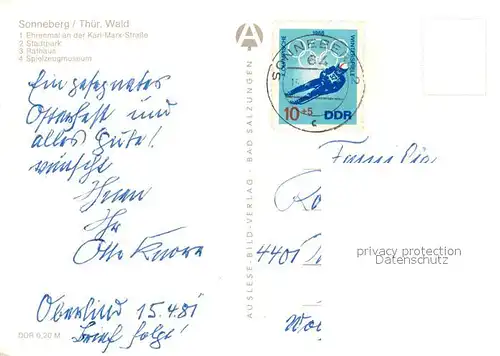 Sonneberg / Thür. Wald
1 Ehrenmal an der Karl-Marx-Straße
2 Stadtpark
3 Rathaus
4 Spielzeugmuseum
Ein gesegnetes
Osterfest und
alles Gute!
wünscht
Ihnen
Ihr
Otto Knorr
Oberlind 15.4.81
Brief folgt!
DDR 0,20 M
A
AUSLESE-BILD-VERLAG · BAD SALZUNGEN
1968
WINTERSPIELE
10+5 DDR
SONNEBERG 2
64
c
Familie
4401
privacy protection
Datenschutz